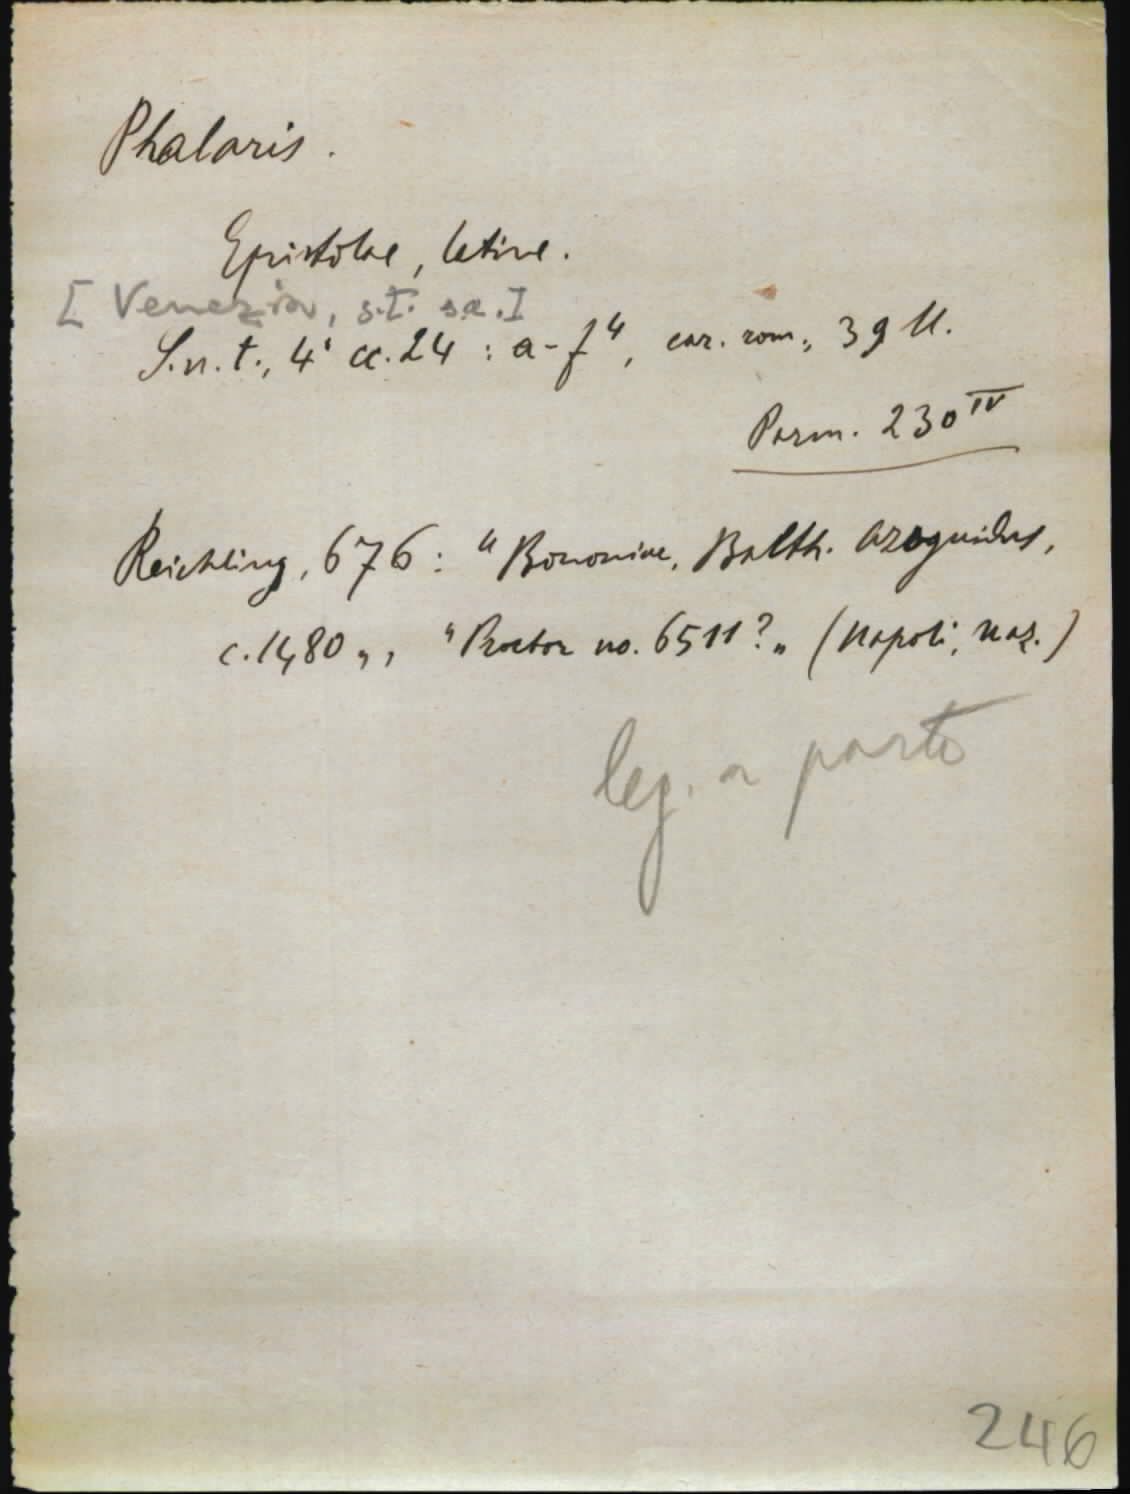 Phalaris.
Epistolae, latine.
[Venezia, s.t. s.a.]
S.n.t., 4° cc. 24 : a-f⁴, car. rom., 39 ll.
Parm. 230 IV
Reichling, 676 : "Bononiae, Balth. Azoguidus,
c. 1480", "Proctor no. 6511?" (Napoli, Naz.)
leg. a parte
246